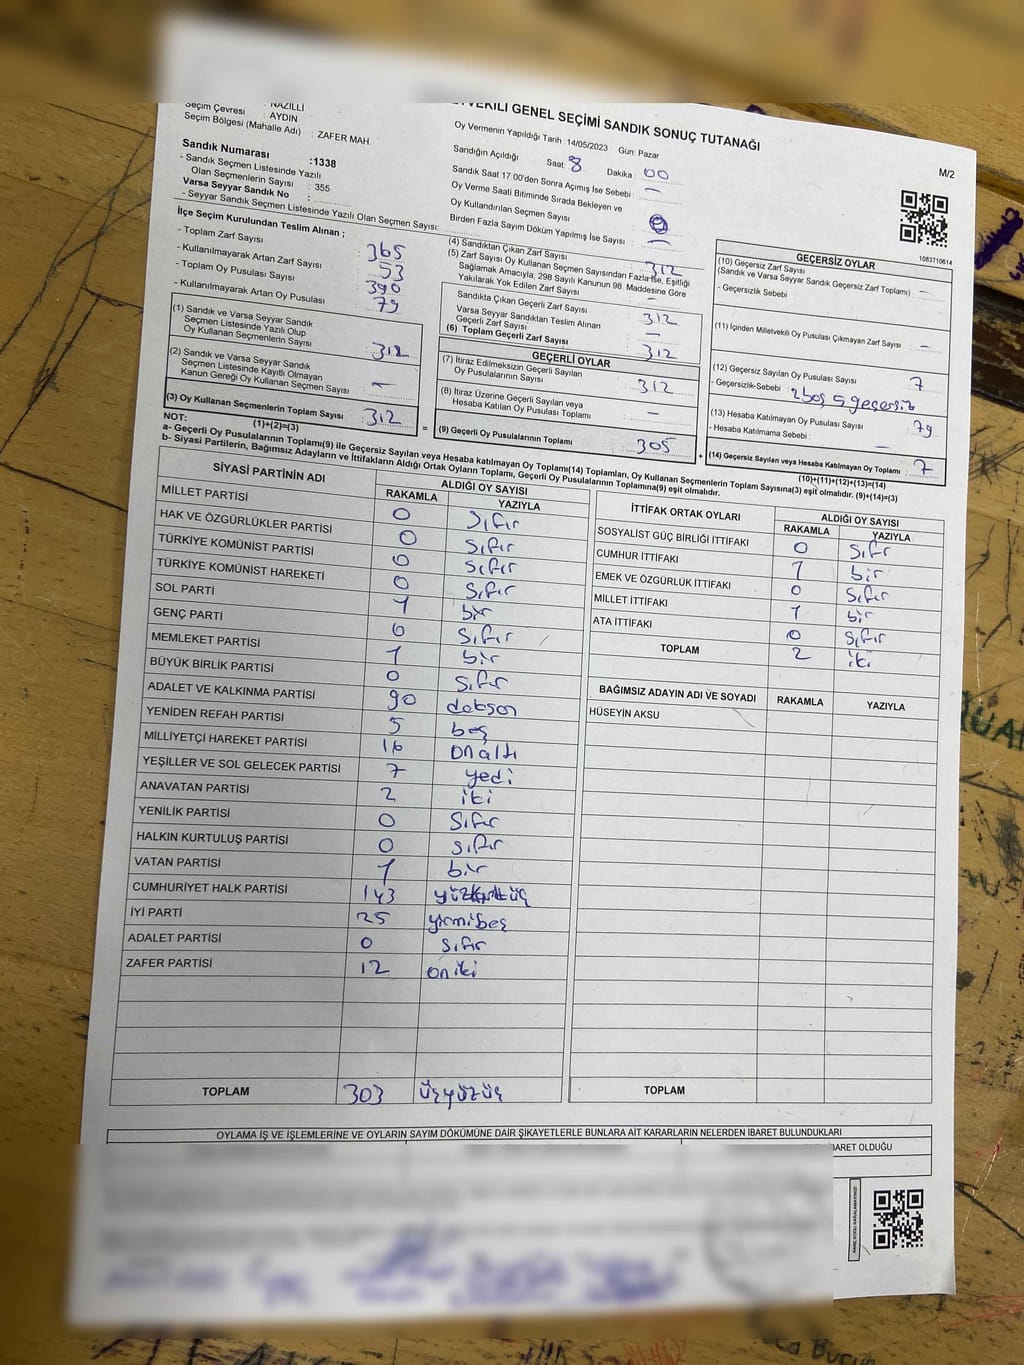 TVEKİLİ GENEL SEÇİMİ SANDIK SONUÇ TUTANAĞI
M/2
NAZİLLİ
Seçim Çevresi : AYDIN
Seçim Bölgesi (Mahalle Adı) : ZAFER MAH.
Sandık Numarası :1338
- Sandık Seçmen Listesinde Yazılı
Olan Seçmenlerin Sayısı : 355
Varsa Seyyar Sandık No :
- Seyyar Sandık Seçmen Listesinde Yazılı Olan Seçmen Sayısı:
Oy Vermenin Yapıldığı Tarih :14/05/2023 Gün: Pazar
Sandığın Açıldığı Saat: 8 Dakika : 00
Sandık Saat 17:00'den Sonra Açımış İse Sebebi : -
Oy Verme Saati Bitiminde Sırada Bekleyen ve
Oy Kullandırılan Seçmen Sayısı
Birden Fazla Sayım Döküm Yapılmış İse Sayısı : -
1083710614
İlçe Seçim Kurulundan Teslim Alınan ;
- Toplam Zarf Sayısı : 365
- Kullanılmayarak Artan Zarf Sayısı : 53
- Toplam Oy Pusulası Sayısı : 390
- Kullanılmayarak Artan Oy Pusulası : 79
(1) Sandık ve Varsa Seyyar Sandık
Seçmen Listesinde Yazılı Olup
Oy Kullanan Seçmenlerin Sayısı : 312
(2) Sandık ve Varsa Seyyar Sandık
Seçmen Listesinde Kayıtlı Olmayan
Kanun Gereği Oy Kullanan Seçmen Sayısı : -
(3) Oy Kullanan Seçmenlerin Toplam Sayısı : 312
(1)+(2)=(3)
(4) Sandıktan Çıkan Zarf Sayısı : 312
(5) Zarf Sayısı Oy Kullanan Seçmen Sayısından Fazla İse, Eşitliği
Sağlamak Amacıyla, 298 Sayılı Kanunun 98. Maddesine Göre
Yakılarak Yok Edilen Zarf Sayısı : -
Sandıkta Çıkan Geçerli Zarf Sayısı : 312
Varsa Seyyar Sandıktan Teslim Alınan
Geçerli Zarf Sayısı : -
(6) Toplam Geçerli Zarf Sayısı : 312
GEÇERLİ OYLAR
(7) İtiraz Edilmeksizin Geçerli Sayılan
Oy Pusulalarının Sayısı : 312
(8) İtiraz Üzerine Geçerli Sayılan veya
Hesaba Katılan Oy Pusulası Toplamı : -
= (9) Geçerli Oy Pusulalarının Toplamı : 305 +
GEÇERSİZ OYLAR
(10) Geçersiz Zarf Sayısı
(Sandık ve Varsa Seyyar Sandık Geçersiz Zarf Toplamı) : -
- Geçersizlik Sebebi :
(11) İçinden Milletvekili Oy Pusulası Çıkmayan Zarf Sayısı : -
(12) Geçersiz Sayılan Oy Pusulası Sayısı : 7
- Geçersizlik Sebebi : 2 boş 5 geçersiz
(13) Hesaba Katılmayan Oy Pusulası Sayısı : 79
- Hesaba Katılmama Sebebi : -
(14) Geçersiz Sayılan veya Hesaba Katılmayan Oy Toplamı : 7
(10)+(11)+(12)+(13)=(14)
NOT:
a- Geçerli Oy Pusulalarının Toplamı(9) ile Geçersiz Sayılan veya Hesaba katılmayan Oy Toplamı(14) Toplamları, Oy Kullanan Seçmenlerin Toplam Sayısına(3) eşit olmalıdır. (9)+(14)=(3)
b- Siyasi Partilerin, Bağımsız Adayların ve İttifakların Aldığı Ortak Oyların Toplamı, Geçerli Oy Pusulalarının Toplamına(9) eşit olmalıdır.
SİYASİ PARTİNİN ADI ALDIĞI OY SAYISI
RAKAMLA YAZIYLA
MİLLET PARTİSİ 0 sıfır
HAK VE ÖZGÜRLÜKLER PARTİSİ 0 sıfır
TÜRKİYE KOMÜNİST PARTİSİ 0 sıfır
TÜRKİYE KOMÜNİST HAREKETİ 0 sıfır
SOL PARTİ 1 bir
GENÇ PARTİ 0 sıfır
MEMLEKET PARTİSİ 1 bir
BÜYÜK BİRLİK PARTİSİ 0 sıfır
ADALET VE KALKINMA PARTİSİ 90 doksan
YENİDEN REFAH PARTİSİ 5 beş
MİLLİYETÇİ HAREKET PARTİSİ 16 onaltı
YEŞİLLER VE SOL GELECEK PARTİSİ 7 yedi
ANAVATAN PARTİSİ 2 iki
YENİLİK PARTİSİ 0 sıfır
HALKIN KURTULUŞ PARTİSİ 0 sıfır
VATAN PARTİSİ 1 bir
CUMHURİYET HALK PARTİSİ 143
İYİ PARTİ 25 yirmibeş
ADALET PARTİSİ 0 sıfır
ZAFER PARTİSİ 12 oniki
TOPLAM 303 üçyüzüç
İTTİFAK ORTAK OYLARI ALDIĞI OY SAYISI
RAKAMLA YAZIYLA
SOSYALİST GÜÇ BİRLİĞİ İTTİFAKI 0 sıfır
CUMHUR İTTİFAKI 1 bir
EMEK VE ÖZGÜRLÜK İTTİFAKI 0 sıfır
MİLLET İTTİFAKI 1 bir
ATA İTTİFAKI 0 sıfır
TOPLAM 2 iki
BAĞIMSIZ ADAYIN ADI VE SOYADI RAKAMLA YAZIYLA
HÜSEYİN AKSU
TOPLAM
OYLAMA İŞ VE İŞLEMLERİNE VE OYLARIN SAYIM DÖKÜMÜNE DAİR ŞİKAYETLERLE BUNLARA AİT KARARLARIN NELERDEN İBARET BULUNDUKLARI
BARET OLDUĞU